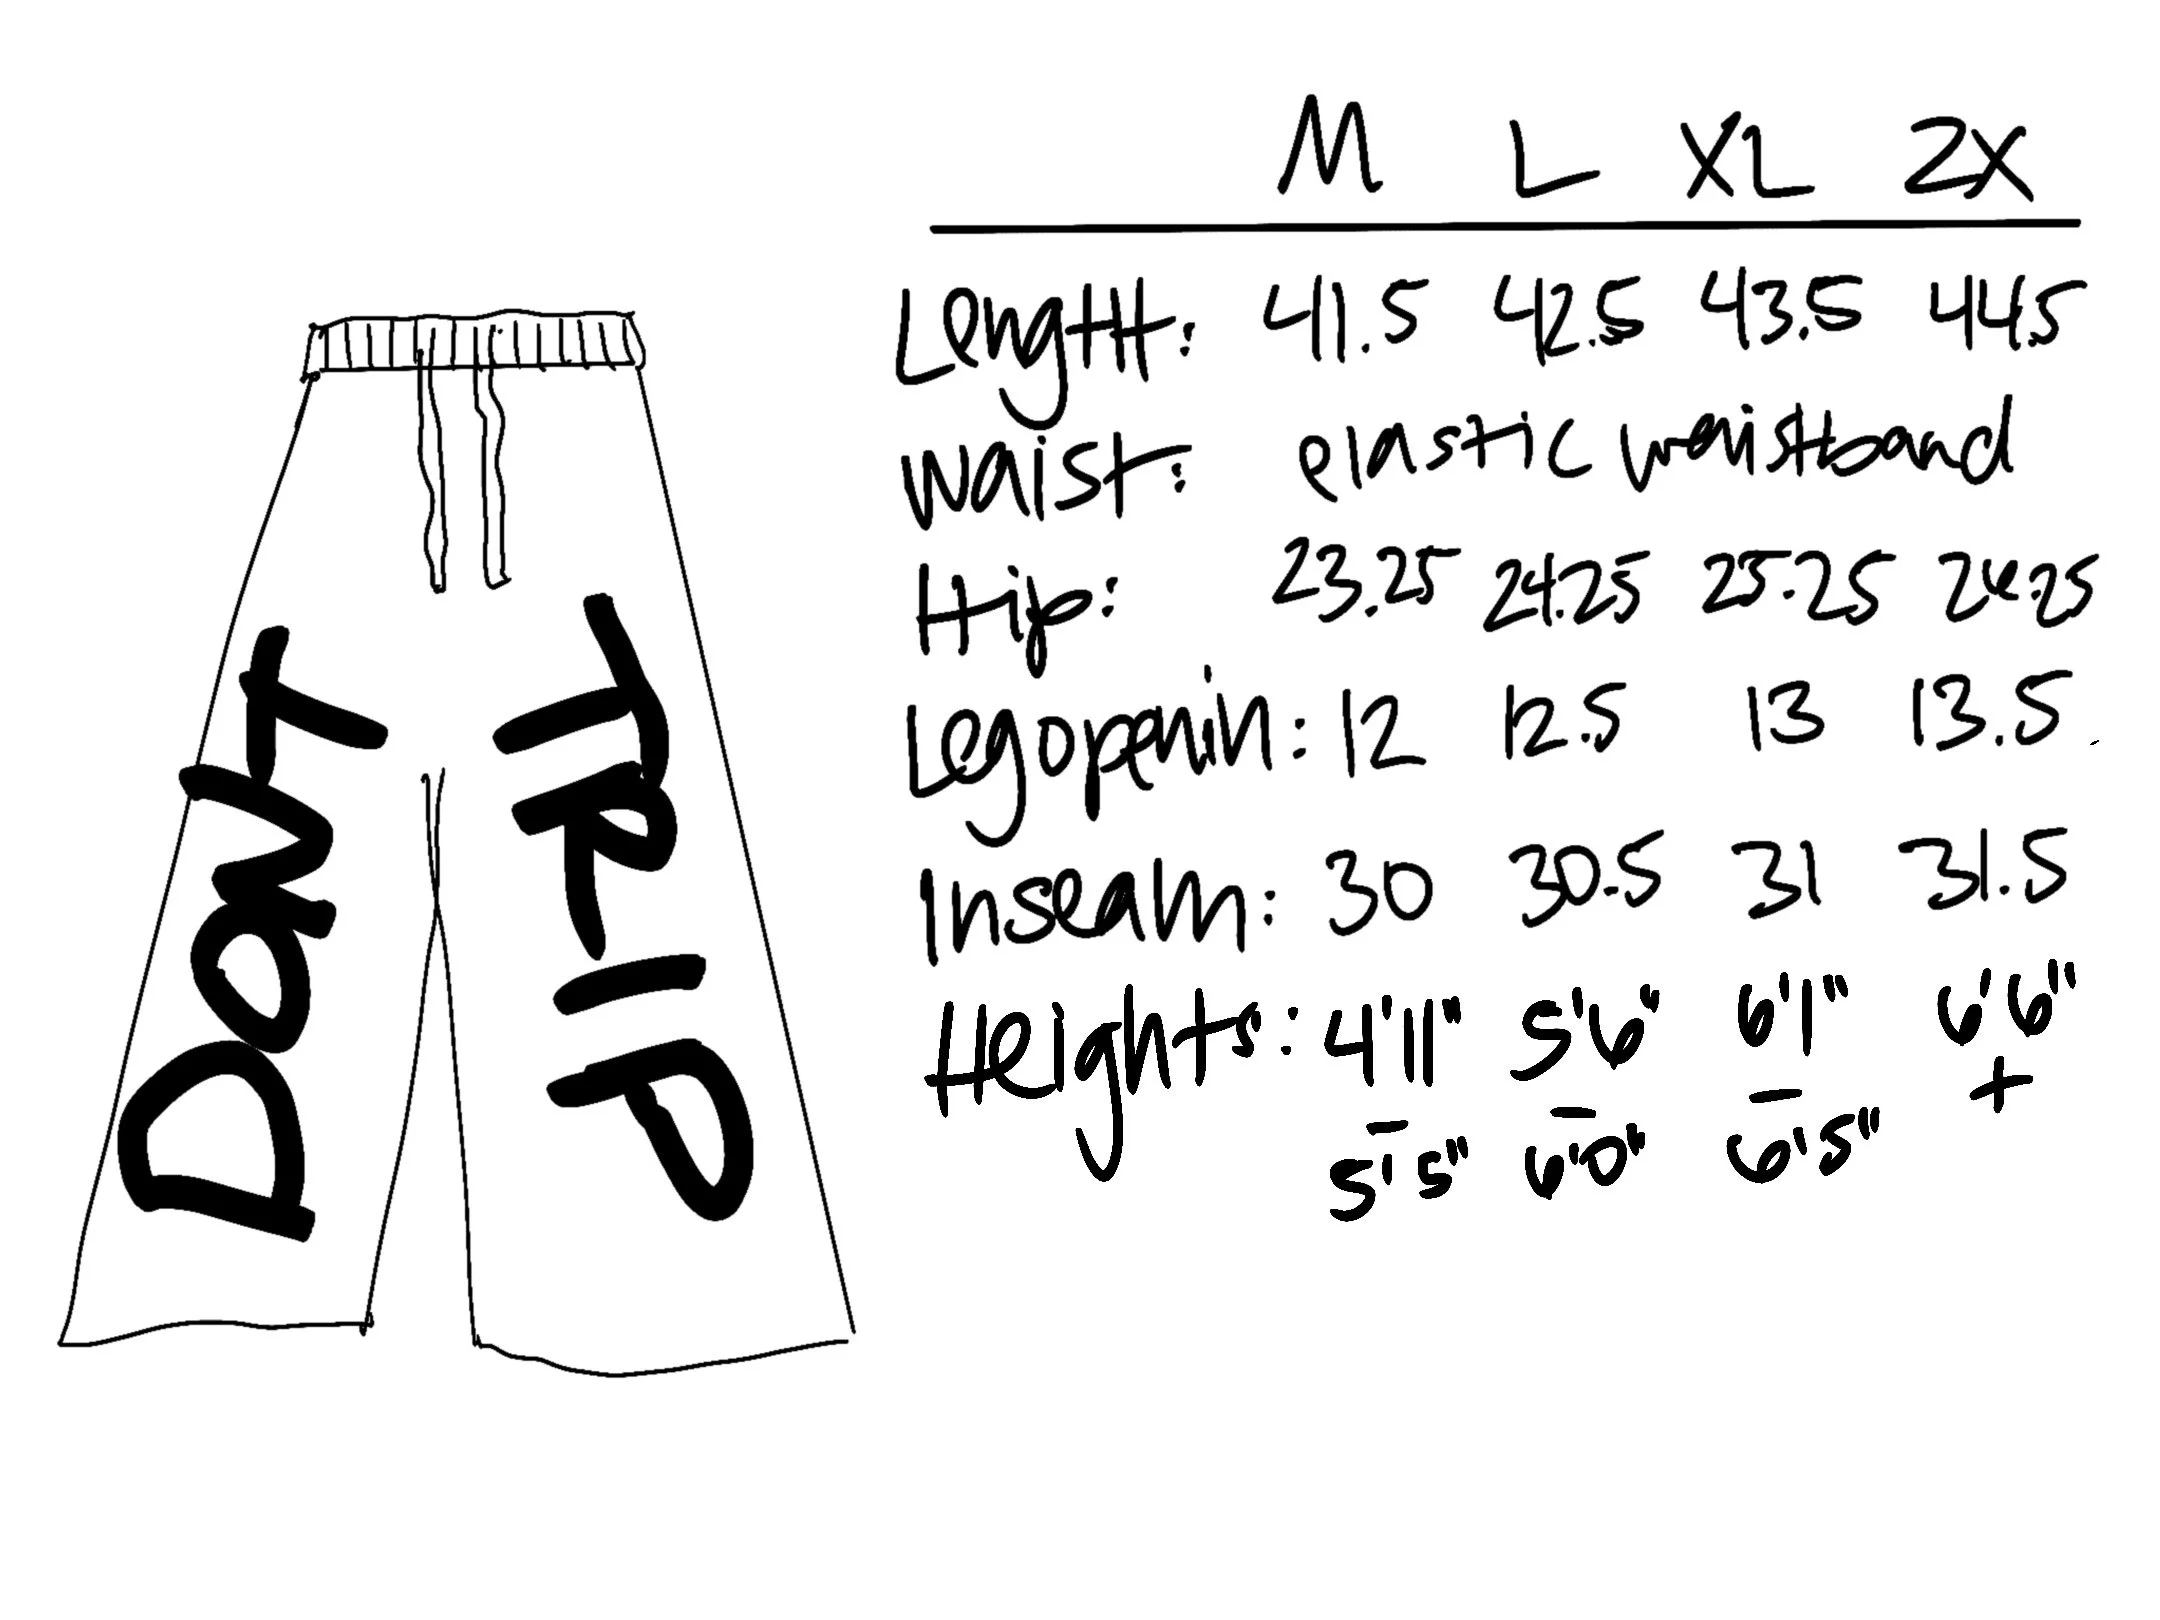 DONT
TRIP
M L XL 2X
Lenght: 41.5 42.5 43.5 44.5
Waist: elastic waistband
Hip: 23.25 24.25 25.25 26.25
Legopenin: 12 12.5 13 13.5
Inseam: 30 30.5 31 31.5
Heights: 4'11" 5'6" 6'1" 6'6"
– – – +
5'5" 6'0" 6'5"